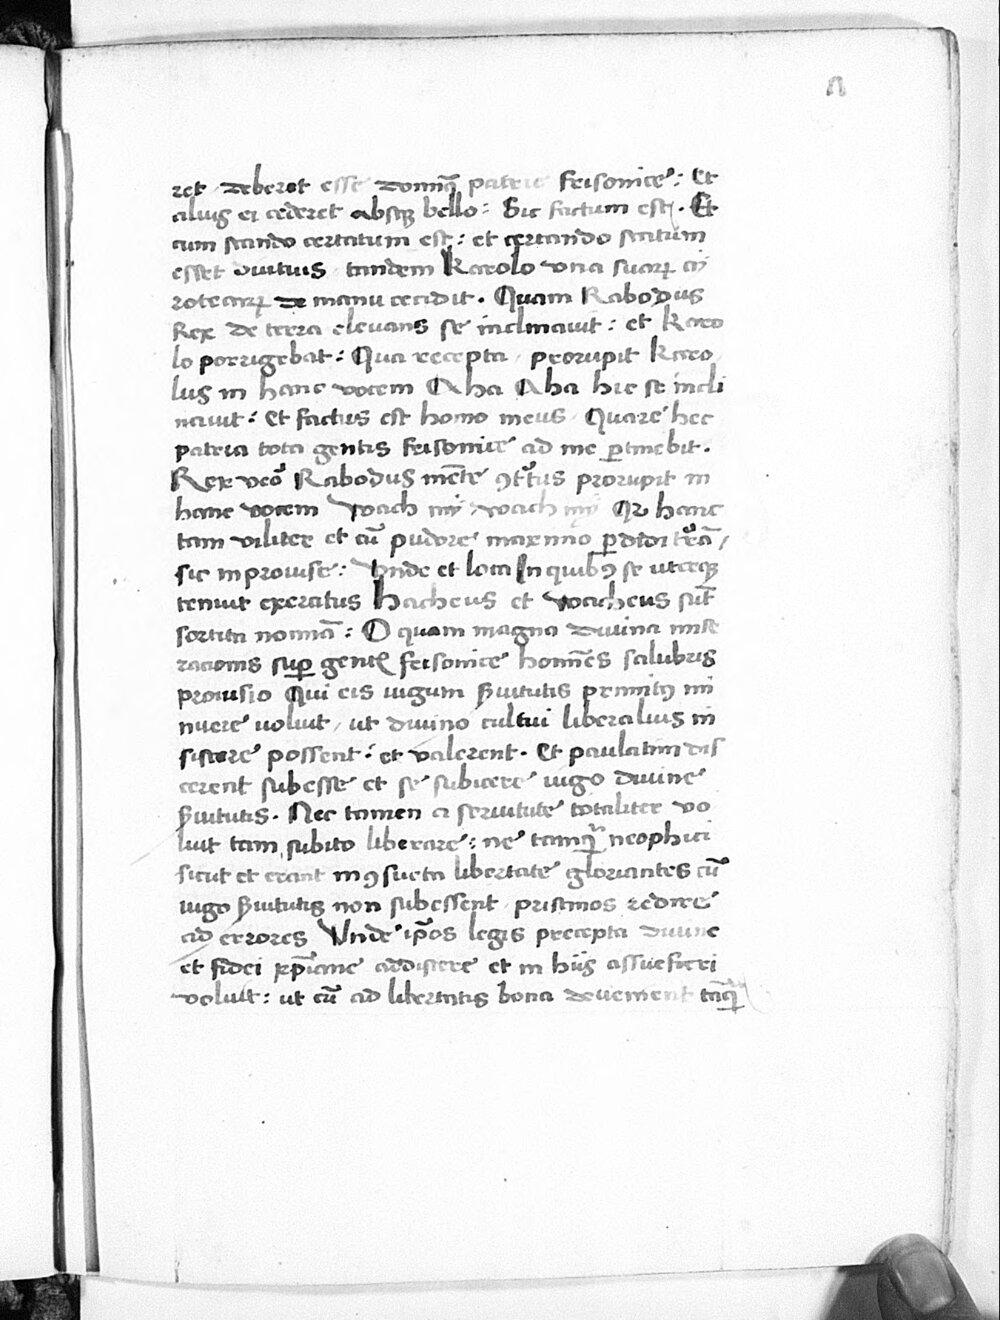 ret deberet esse domnꝰ patrie frisonice : Et
alius ei cederet absqꝫ bello : Sic factum est . Et
cum stando certatum est : et certando statum
esset diutius tandem Karolo una suarꝝ ci
rotecarꝝ de manu cecidit . Quam Rabodus
Rex de terra elevans se inclinauit : et Karo
lo porrigebat : Qua recepta prorupit Karo
lus in hanc vocem Aha Aha hic se incli
nauit : Et factus est homo meus Quare hec
patria tota gentis frisonice ad me ꝑtinebit .
Rex vero Rabodus mēte ꝯtͥtus prorupit in
hanc vocem Wach mÿ wach mÿ Qꝛ hanc
tam viliter et cū pudore maximo ꝑdidi trā /
sic improuise : Vnde et loca In quibꝯ se uterqꝫ
tenuit exercitus Hacheus et Wacheus sūt
sortita nomina : O quam magna diuina mise
racionis suꝑ gentē frisonice homīes salubris
prouisio Qui eis iugum ẜuitutis primitꝯ mi
nuere uoluit / ut diuino cultui liberalius in
sistere possent : et valerent . Et paulatim dis
cerent subesse et se subicere iugo diuine
ẜuitutis . Nec tamen a seruitute totaliter vo
luit tam subito liberare : ne tamqͣ neophiti
sicut et erant inꝯsueta libertate gloriantes cū
iugo ẜuitutis non subessent pristinos redire
ad errores Vnde ip̄os legis precepta diuine
et fidei xp̄iane addiscere et in hiis assuefieri
voluit : ut cū ad libertatis bona deuenient tāqͣ